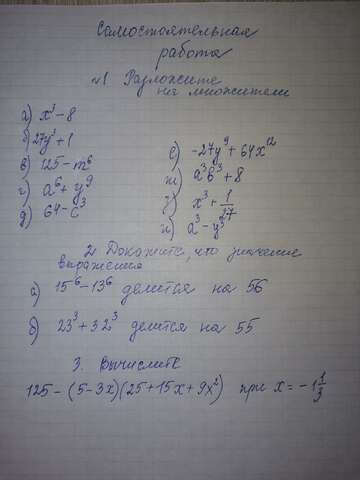 Самостоятельная
работа
№1 Разложите
на множители
а) x³ - 8
б) 27y³ + 1
в) 125 - m⁶
г) a⁶ + y⁹
д) 64 - c³
е) -27y⁹ + 64x¹²
ж) a³b³ + 8
з) x³ + 1/27
и) a³ - y³
2. Докажите, что значение
выражения
а) 15⁶ - 13⁶ делится на 56
б) 23³ + 32³ делится на 55
3. Вычислите
125 - (5 - 3x)(25 + 15x + 9x²) при x = -1 1/3